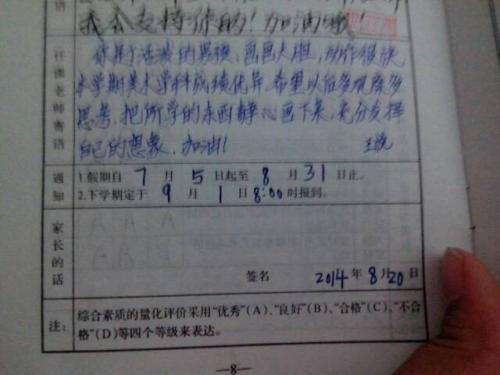 我会支持你的！加油哦
任课老师寄语
你是个活泼的男孩，画画大胆，动作很快
本学期美术学科成绩优异，希望以后多观察多
思考，把所学的东西静心画下来，充分发挥
自己的想象，加油！
通知
1.假期自7月5日起至8月31日止。
2.下学期定于9月1日8:00时报到。
家长的话
签名 2014年8月20日
注：
综合素质的量化评价采用“优秀”（A）、“良好”（B）、“合格”（C）、“不合
格”（D）等四个等级来表达。
—8—